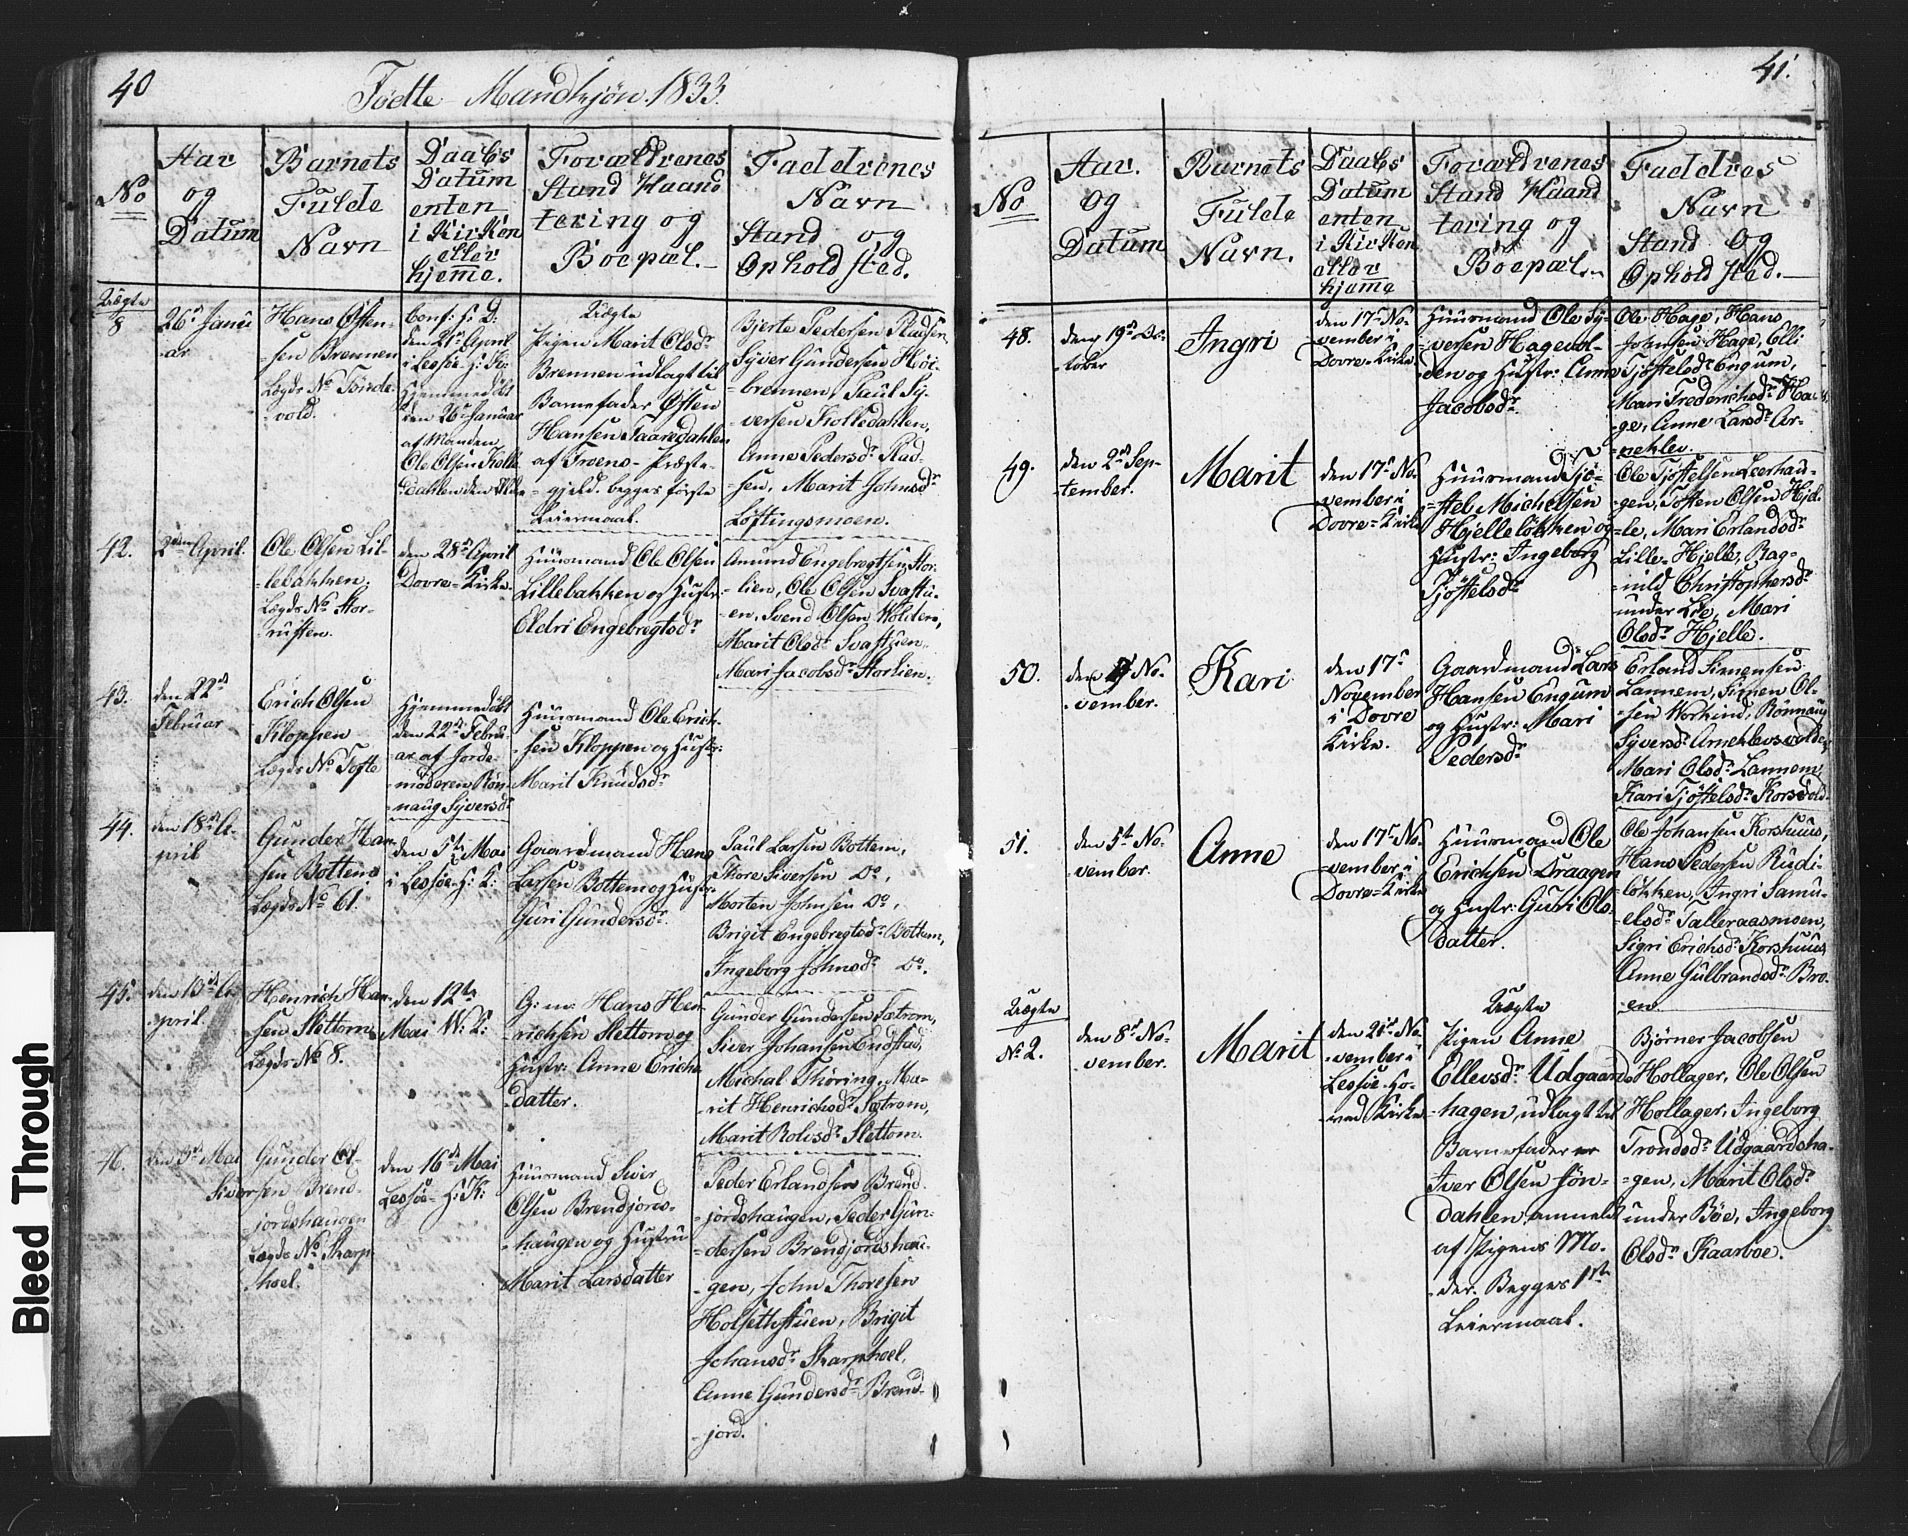 40
Fødte Mandkjøn. 1833.
No
Aar
og
Datum
Barnets
Fulde
Navn
Daabs
Datum
enten
i Kirken
eller
hjeme.
Forældrenes
Stand Haand
tering og
Boepæl.-
Faddrenes
Navn
Stand og
Ophold sted.
Uægte
8
26de Janu
-ar
Hans Østen-
-sen Brennen
Lægds No
-vold.
Conf: s: D:
den 21de April
i Lessøe H: K:
Hjemmedøbt
den 26de Januar
af Manden
Ole Olsen Kolle
Uægte
Pigen Marit Olsdr
Brennen udlagt til
Barnefader Østen
Hansen
af Froens- Præste-
-gjeld. begges første
Leiermaal.
Bjerte Pedersen Stadsen,
Syver Gundersen Høi-
-brennen, Paul Sy-
-versen Kolledahlen,
Anne Pedersdr Stad-
-sen, Marit Johnsdr
Løftingsmoen.
42.
2den April.
Ole Olsen Lil-
-lebakken.
Lægds No Stor-
-rusten.
den 28de April
Dovre-Kirke
Huusmand Ole Olsen
Lillebakken og Hustr:
Eldri Engebregtsdr
Amund Engebregtsen Stor-
-lien, Ole Olsen Svastu-
-en, Svend Olsen Wolden,
Marit Olsdr Svastuen
Mari Jacobsdr Storlien.
43.
den 22de
Februar
Erich Olsen
Kloppen
Lægds No Tofte
Hjemmedøbt
den 22de Febru-
-ar af Jorde-
-moderen Røn-
-naug Syversdr
Huusmand Ole Erich-
-sen Kloppen og Hustr:
Marit Knudsdr
44.
den 18de A-
-pril
Gunder Han-
-sen Bottem
Lægds No 61.
den 5te Mai
i Lessøe H: K:
Gaardmand Hans
Larsen Bottem og Hustr:
Guri Gundersdr
Paul Larsen Bottem,
Thore Siversen Do,
Morten Johnsen Do,
Brigit Engebregtsdr Bottem,
Ingeborg Johnsdr Do.
45.
den 13de A-
-pril.
Henrich Han-
-sen Slettom
Lægds No 8.
den 12te
Mai W: K:
G: m: Hans Hen-
-richsen Slettom og
Hustr: Anne Erichs-
-datter.
Gunder Gundersen Sætrom,
Siver Johansen Endstad,
Michal Thøring, Ma-
-rit Henrichsdr Sætrom,
Marit Rolvsdr Slettom.
46.
den 3de Mai
Gunder
Siversen Brend-
-jordshaugen
Lægds No Skarp-
-hoel.
den 16de Mai
Lessøe- H: K:
Huusmand Siver
Olsen Brendjords-
-haugen og Hustru
Marit Larsdatter
Peder Erlandsen Brend-
-jordshaugen, Peder Gun-
-dersen Brendjordshau-
-gen, John Thoresen
Holsetstuen, Brigit
Johansdr Skarphoel,
Anne Gundersdr Brend-
-jord.
41.
No
Aar.
og
Datum
Barnets
Fulde
Navn.
Daabs
Datum
enten
i Kirken
eller
hjeme
Forældrenes
Stand Haand
tering og
Boepæl.
Faddres
Navn
Stand og
Ophold sted.
48.
den 19de Oc-
-tober
Ingri
den 17de No-
-vember i
Dovre-Kirke
Huusmand Ole Sy-
-versen Hagevol-
-den og Hustr: Anne
Jacobsdr
Ole Hage, Hans
Johnsen Hage, Elli
Tjøstelsdr Engum,
Mari Frederichsdr Ha-
-ge, Anne Larsdr Ar-
-nehlev.
49.
den 2den Sep-
-tember.
Marit
den 17de No-
-vember i
Dovre-Kirke
Huusmand Tjø-
-stel Michelsen
Hjelleløkken og
Hustr: Ingeborg
Tjøstelsdr
Ole Tjøstelsen Leerhau-
-gen, Tosten Olsen Hjel-
-le, Mari Erlandsdr
Lille-Hjelle, Rag-
-nild Christophersdr
under Lie, Mari
Olsdr Hjelle.
50.
den No-
-vember.
Kari
den 17de
November
i Dovre
Kirke.
Gaardmand Lars
Hansen Engum
og Hustr: Mari
Pedersdr
Erland Simensen
Lannem, Simen Ol-
-sen Workind, Rønnaug
Syversdr Arnehlevsvolden,
Mari Olsdr Lannem,
Kari Tjøstelsdr Korsvold.
51.
den 5te No-
-vember.
Anne
den 17de No-
-vember i
Dovre-Kirke
Huusmand Ole
Erichsen Draagen
og Hustr: Guri Ols-
datter.
Ole Johansen Korshuus,
Hans Pedersen Rudi-
-løkken, Ingri Samu-
-elsdr Talleraasmoen,
Sigri Erichsdr Korshuus
Anne Gulbrandsdr Bro-
-en.
Uægte
No 2.
den 8de No-
-vember.
Marit
den 21de No-
-vember i
Lessøe-Ho-
-ved Kirke
Uægte
Pigen Anne
Ellevsdr Udgaards-
-hagen, udlagt til
Barnefader er
Iver Olsen Søn-
dahlen, anmeldt
af Pigens Mo-
-der. Begges 1ste
Leiermaal.
Bjørner Jacobsen
Hollager, Ole Olsen
Hollager, Ingeborg
Trondsdr Udgaardsha-
-gen, Marit Olsdr
under Bøe, Ingeborg
Olsdr Kaarboe.
Bleed Through